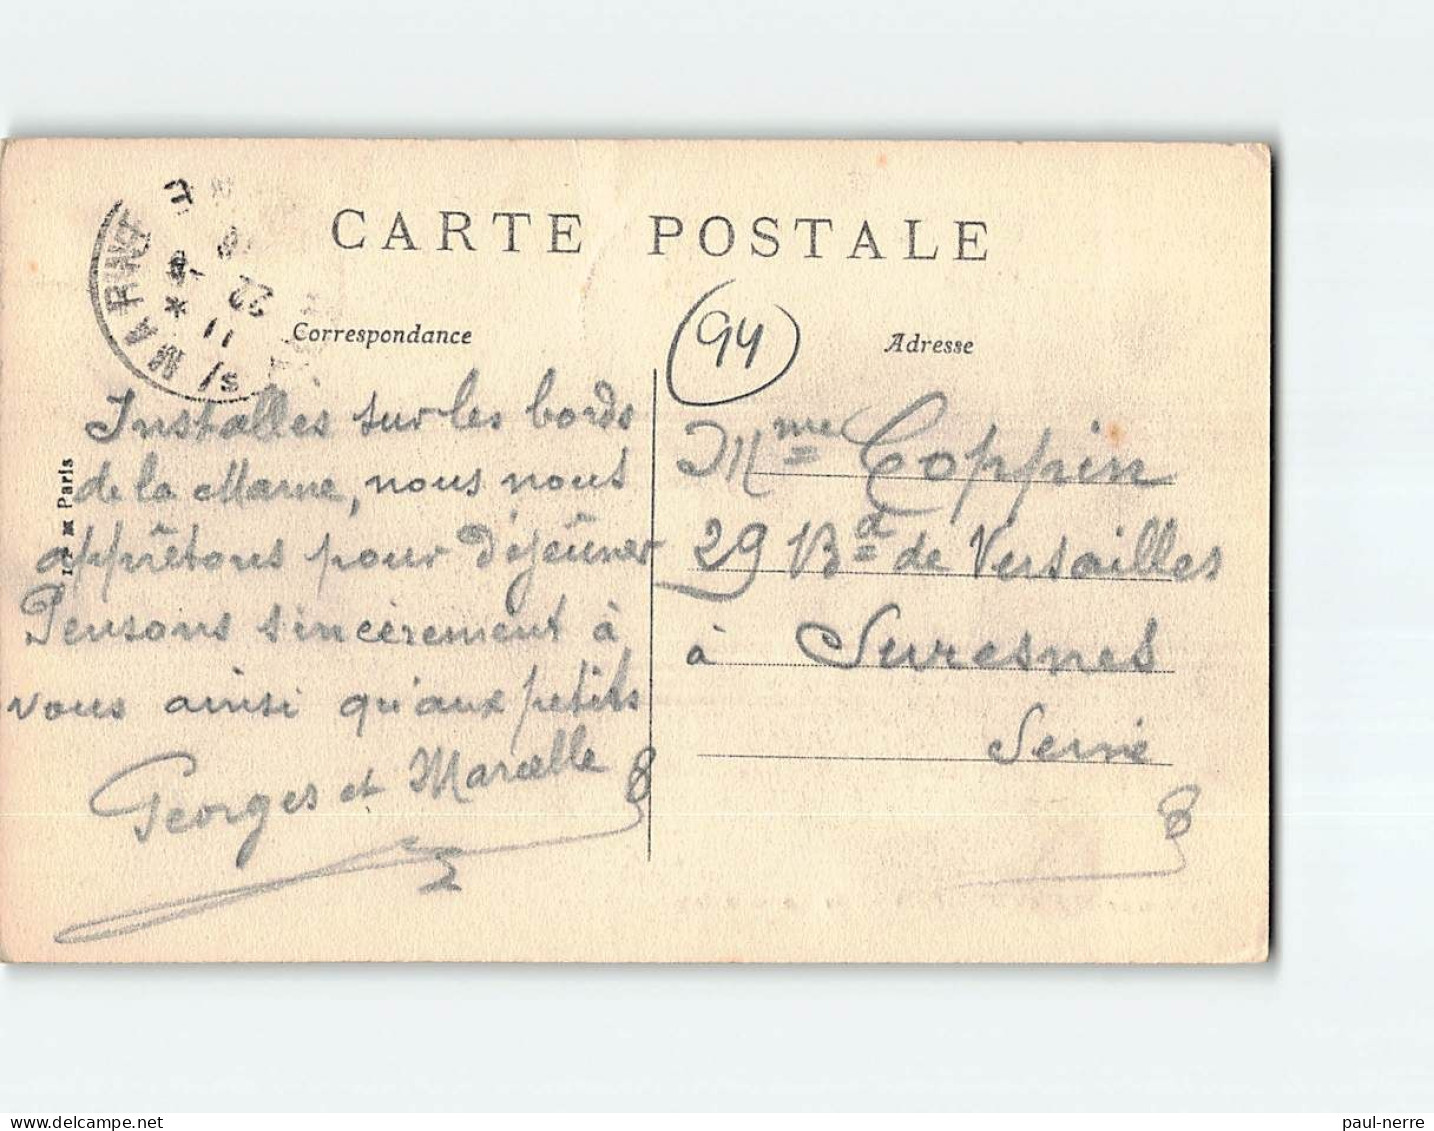 CARTE POSTALE
S/ MARNE
11
22
Correspondance
94
Adresse
Paris
Installes sur les bords
de la Marne, nous nous
apprêtons pour déjeûner
Pensons sincèrement à
vous ainsi qu'aux petits
Georges et Marcelle
Mme Coppin
29 Bd de Versailles
à Suresnes
Seine
delcampe.net
paul-nerre